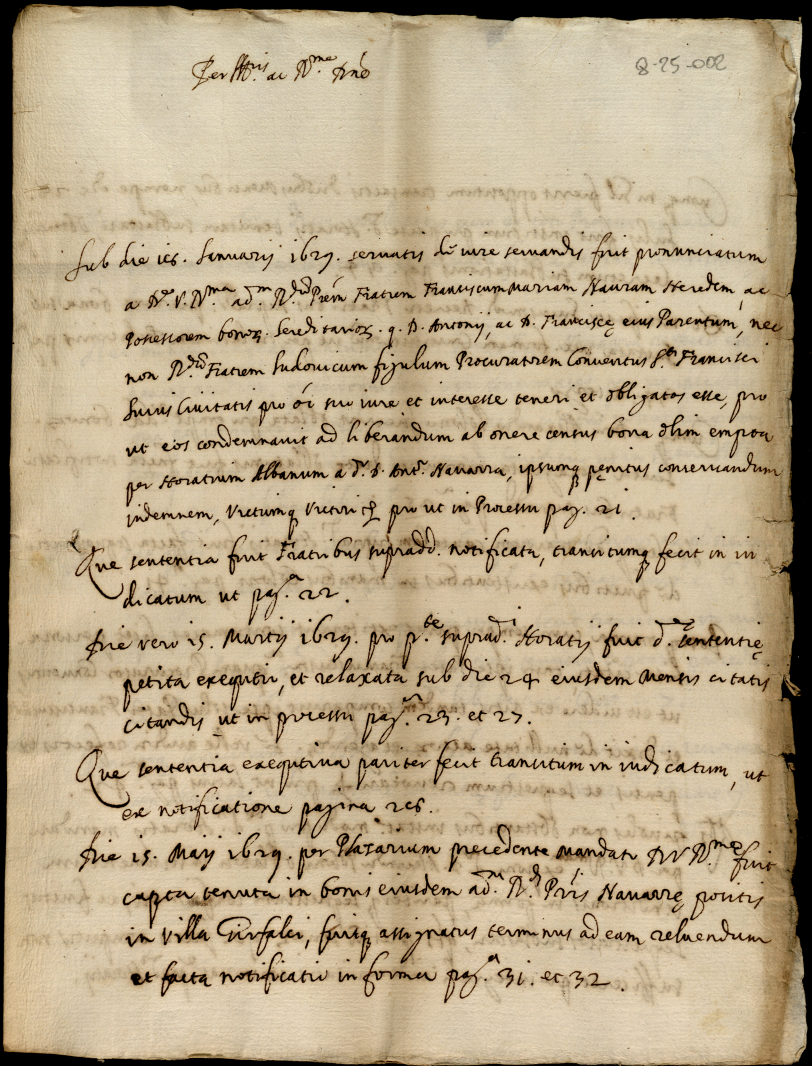 Per Ill.ris ac R.me Dne
8-25-002
Sub die 16. Januarij 1629. servatis de iure servandis fuit pronunciatum
a D.ne V. R.ma ad.m R.dum Prem Fratrem Franciscum Mariam Navram Heredem, ac
Possessorem bonor. hereditarior. q. D. Antonij, ac D. Franciscę eius Parentum, nec
non R.dum Fratrem Ludovicum figulum Procuratorem Conventus S.ti Francisci
huius Civitatis pro oi suo iure et interesse teneri et obligatos esse, pro
ut eos condemnavit ad liberandum ab onere census bona olim empta
per Horatium Albanum a d.o D. Ant.o Navarra, ipsumq penitus conservandum
indemnem, Victumq Victori pro ut in Processu pag. 21.
Que sententia fuit Fratribus supradd. notificata, transitumq fecit in iu
dicatum ut pag.a 22.
Die vero 15. Martij 1629. pro p.te suprad.i Horatij fuit d.ę sententię
petita exequtio, et relaxata sub die 24 eiusdem Mensis citatis
citandis ut in processu pag.a 23. et 27.
Que sententia exequtiva pariter fecit transitum in iudicatum, ut
ex notificatione pagina 26.
Die 15. Maij 1629. per Plazarium precedente mandato D V R.me fuit
capta tenuta in bonis eiusdem ad.m R.di Pris Navarrę positis
in Villa Girfalci, fuitq assignatus terminus ad eam reluendum
et facta notificatio in forma pag.a 31. et 32.